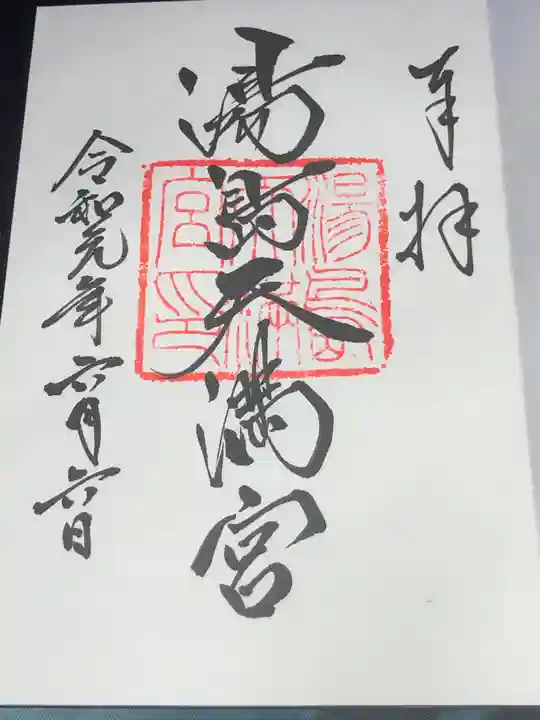 奉拝
湯島天満宮
湯島天満宮印
令和元年六月六日